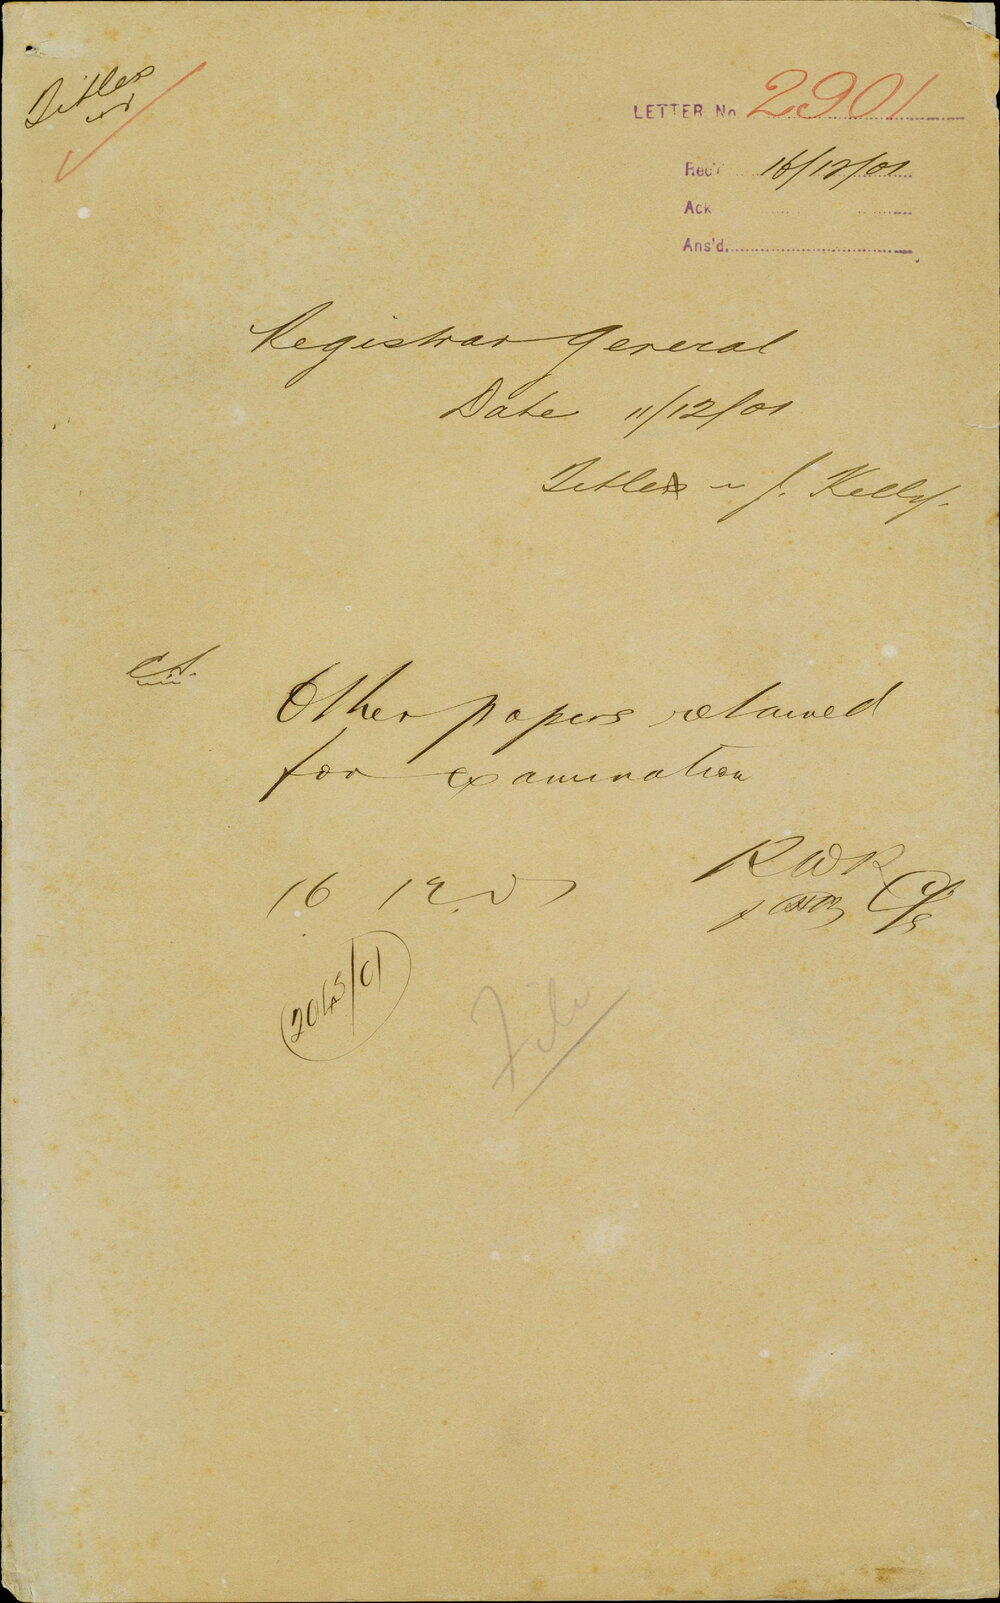 Titles
LETTER No 2901
Rec'd 16/12/01
Ack
Ans'd.
Registrar General
Date 11/12/01
Titles - J. Kelly.
Other papers retained
for examination
RWR
16 12 01
2045/01
File